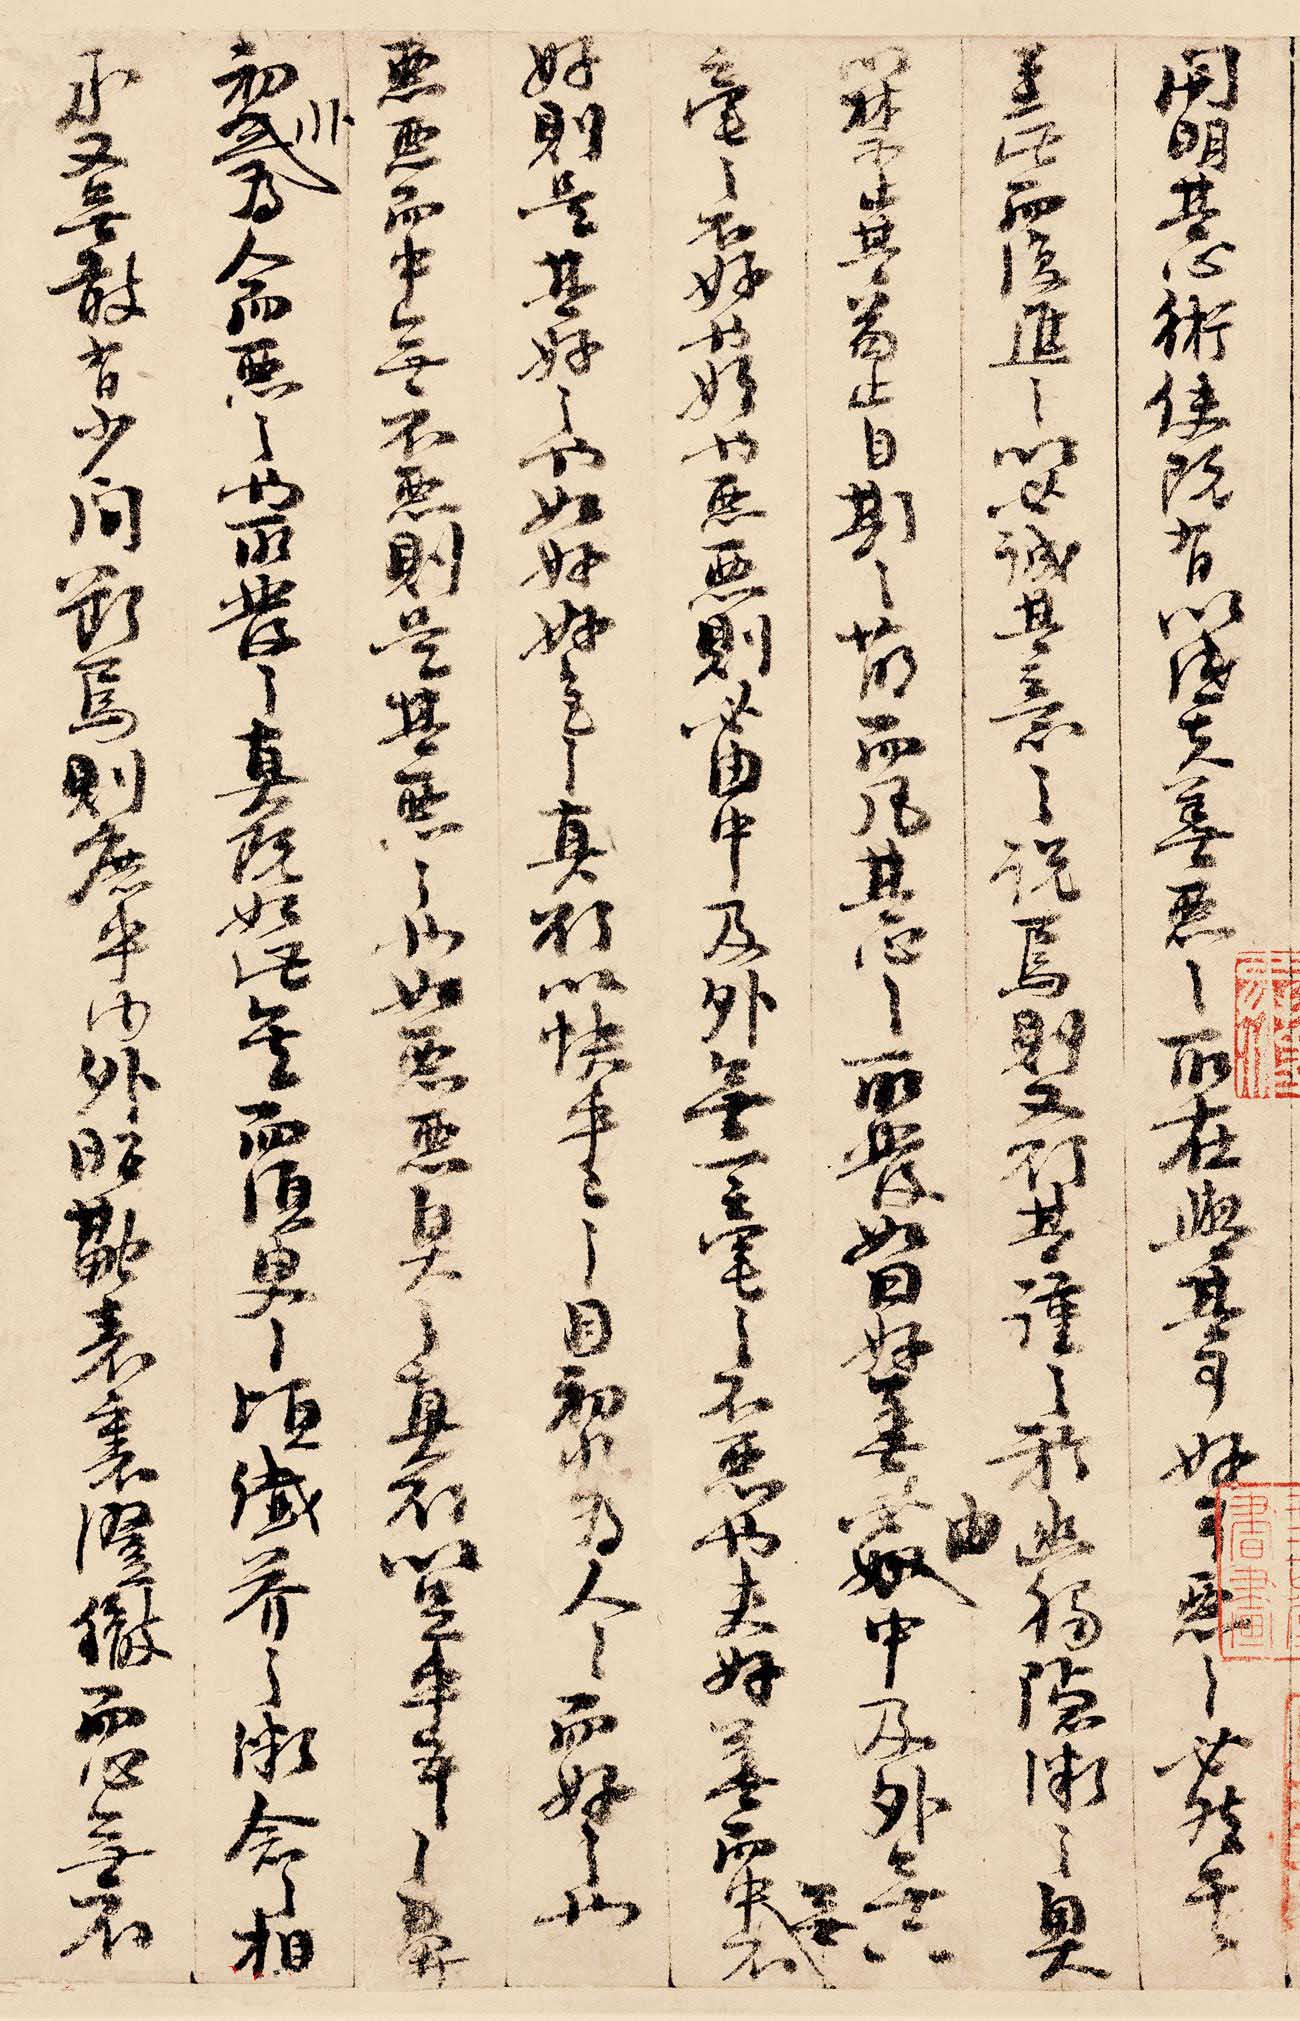 開明其心術使既有以識夫善惡之所在與其可好可惡之必然矣
至此而復進之以必誠其意之說焉則又欲其謹之於幽獨隱微之奧
以禁止其苟且自欺之萌而凡其心之所發如曰好善必由中及外無一
毫之不好也如曰惡惡則必由中及外無一毫之不惡也夫好善而中無不
好則是其好之也如好好色之真欲以快乎己之目初非為人而好之也
惡惡而中無不惡則是其惡之也如惡惡臭之真欲以足乎己之鼻
初非為人而惡之也所發之真既如此矣而須臾之頃纖芥之微念念相
承又無敢有少間斷焉則庶乎內外昭融表裏澄徹而心無不
書畫